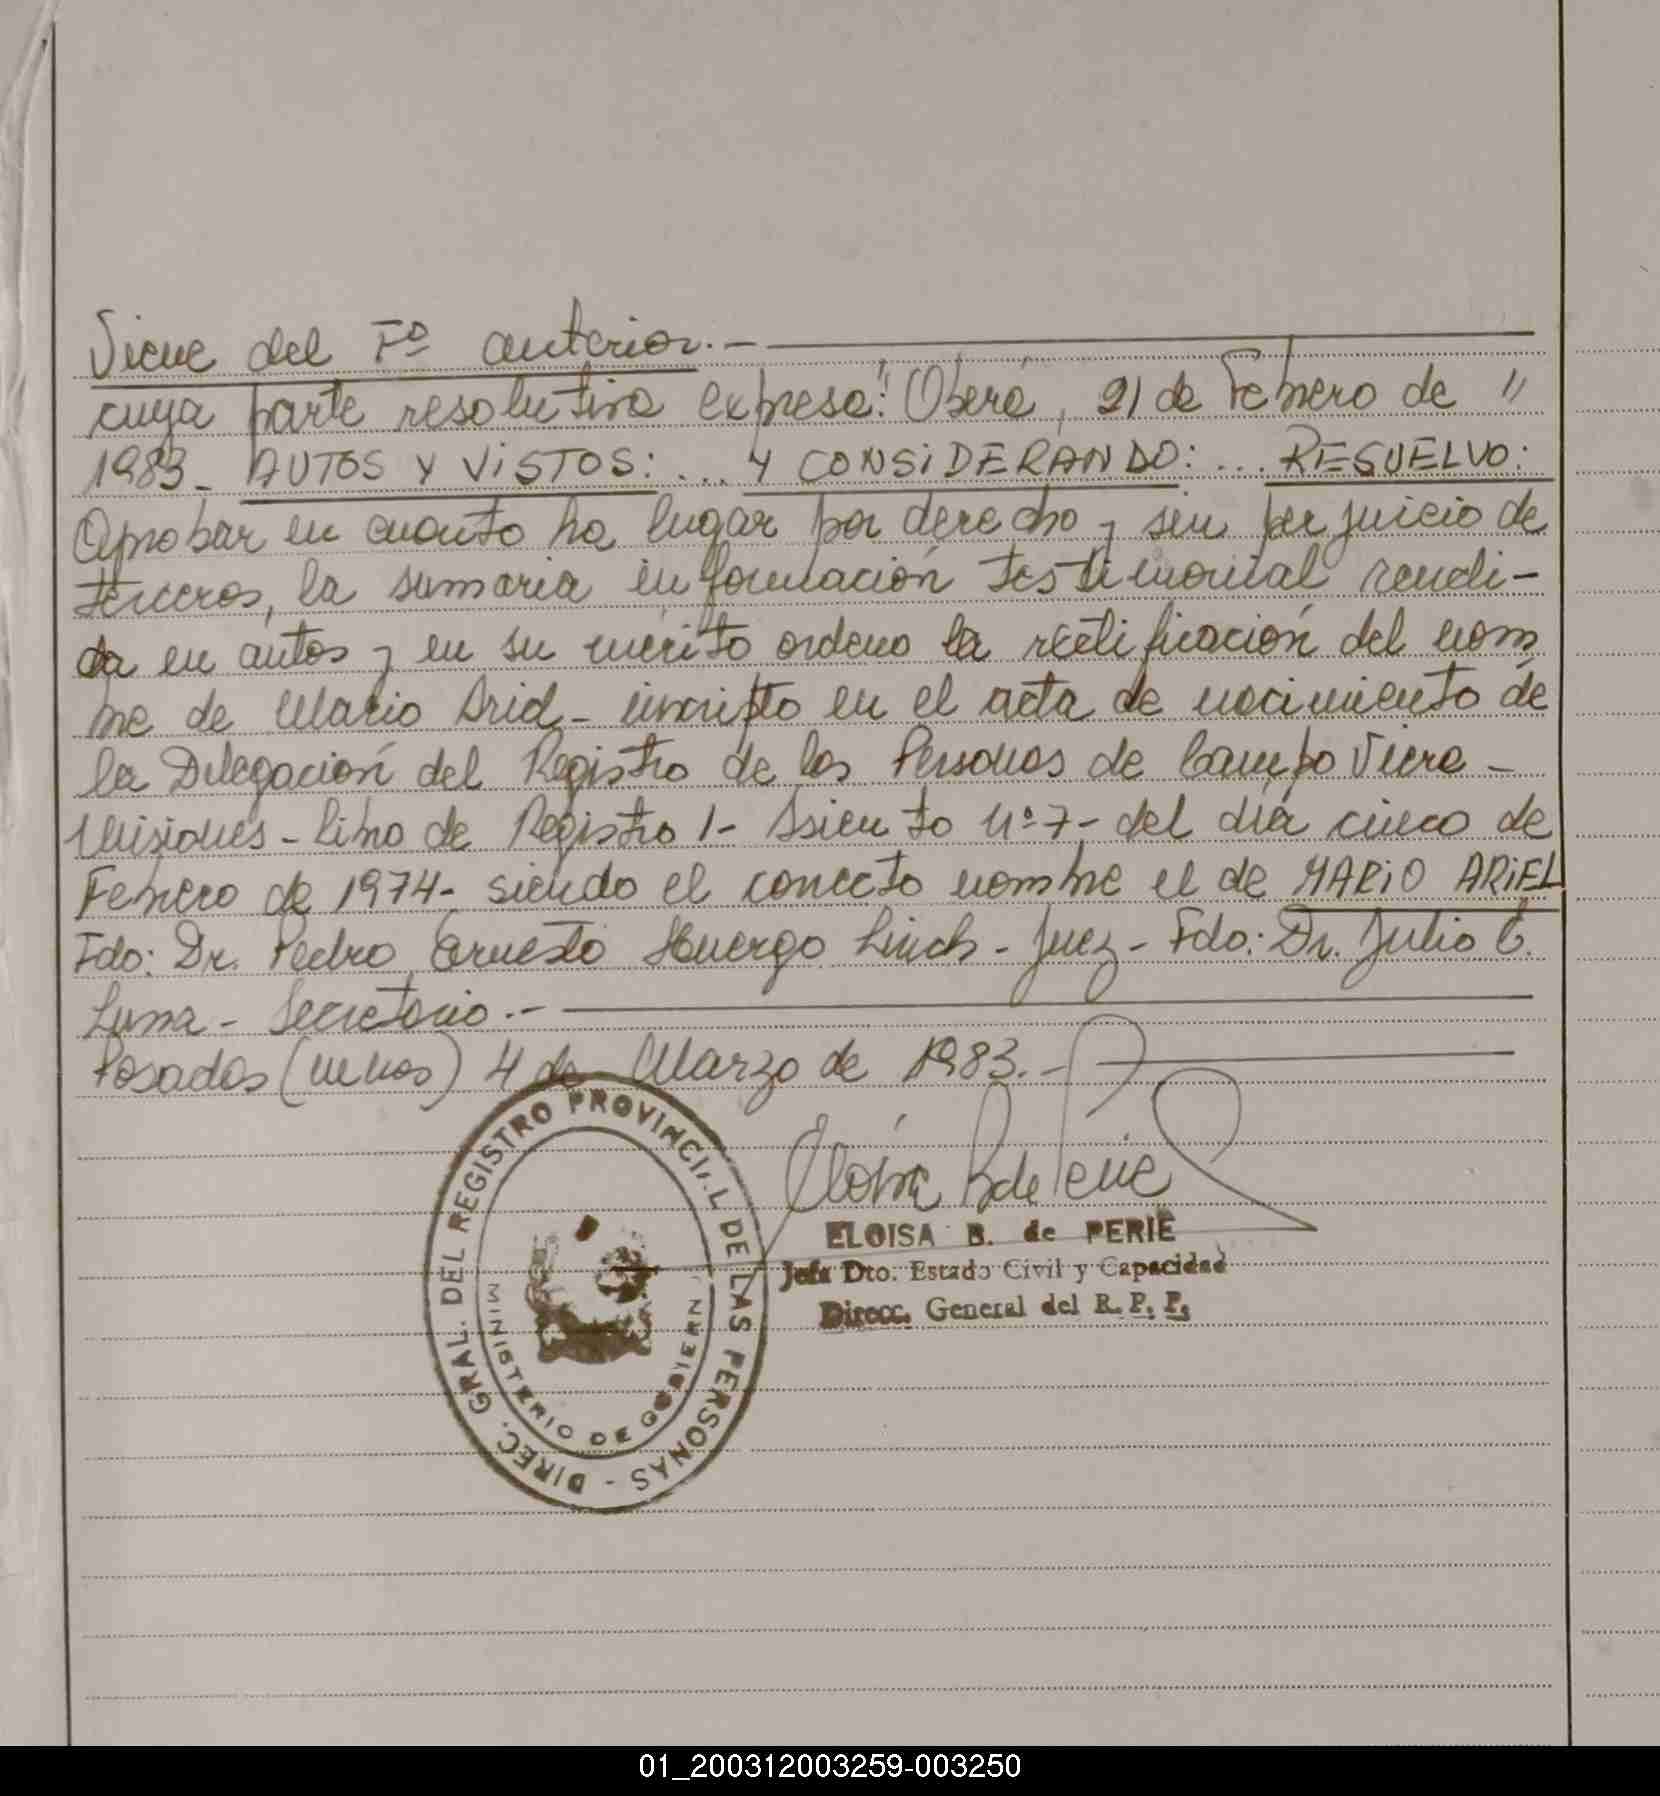 Viene del Fº anterior.-
cuya parte resolutiva expresa: "Oberá, 21 de Febrero de "
1983- AUTOS Y VISTOS:... Y CONSIDERANDO:... RESUELVO:
Aprobar en cuanto ha lugar por derecho y sin perjuicio de
terceros, la sumaria información testimonial rendi-
da en autos y en su mérito ordeno la rectificación del nom
bre de Mario Arid- inscripto en el acta de nacimiento de
la Delegación del Registro de las Personas de Campo Viera-
Misiones- Libro de Registro 1- Asiento Nº 7- del día cinco de
Febrero de 1974- siendo el correcto nombre el de MARIO ARIEL
Fdo: Dr. Pedro Ernesto Huergo Linch- Juez- Fdo: Dr. Julio C.
Luna- Secretario.-
Posadas (Mnes) 4 de Marzo de 1983.-
DIREC. GRAL. DEL REGISTRO PROVINCIAL DE LAS PERSONAS -
MINISTERIO DE GOBIERN
ELOISA B. de PERIE
Jefa Dto. Estado Civil y Capacidad
Direcc. General del R. P. P.
01_200312003259-003250